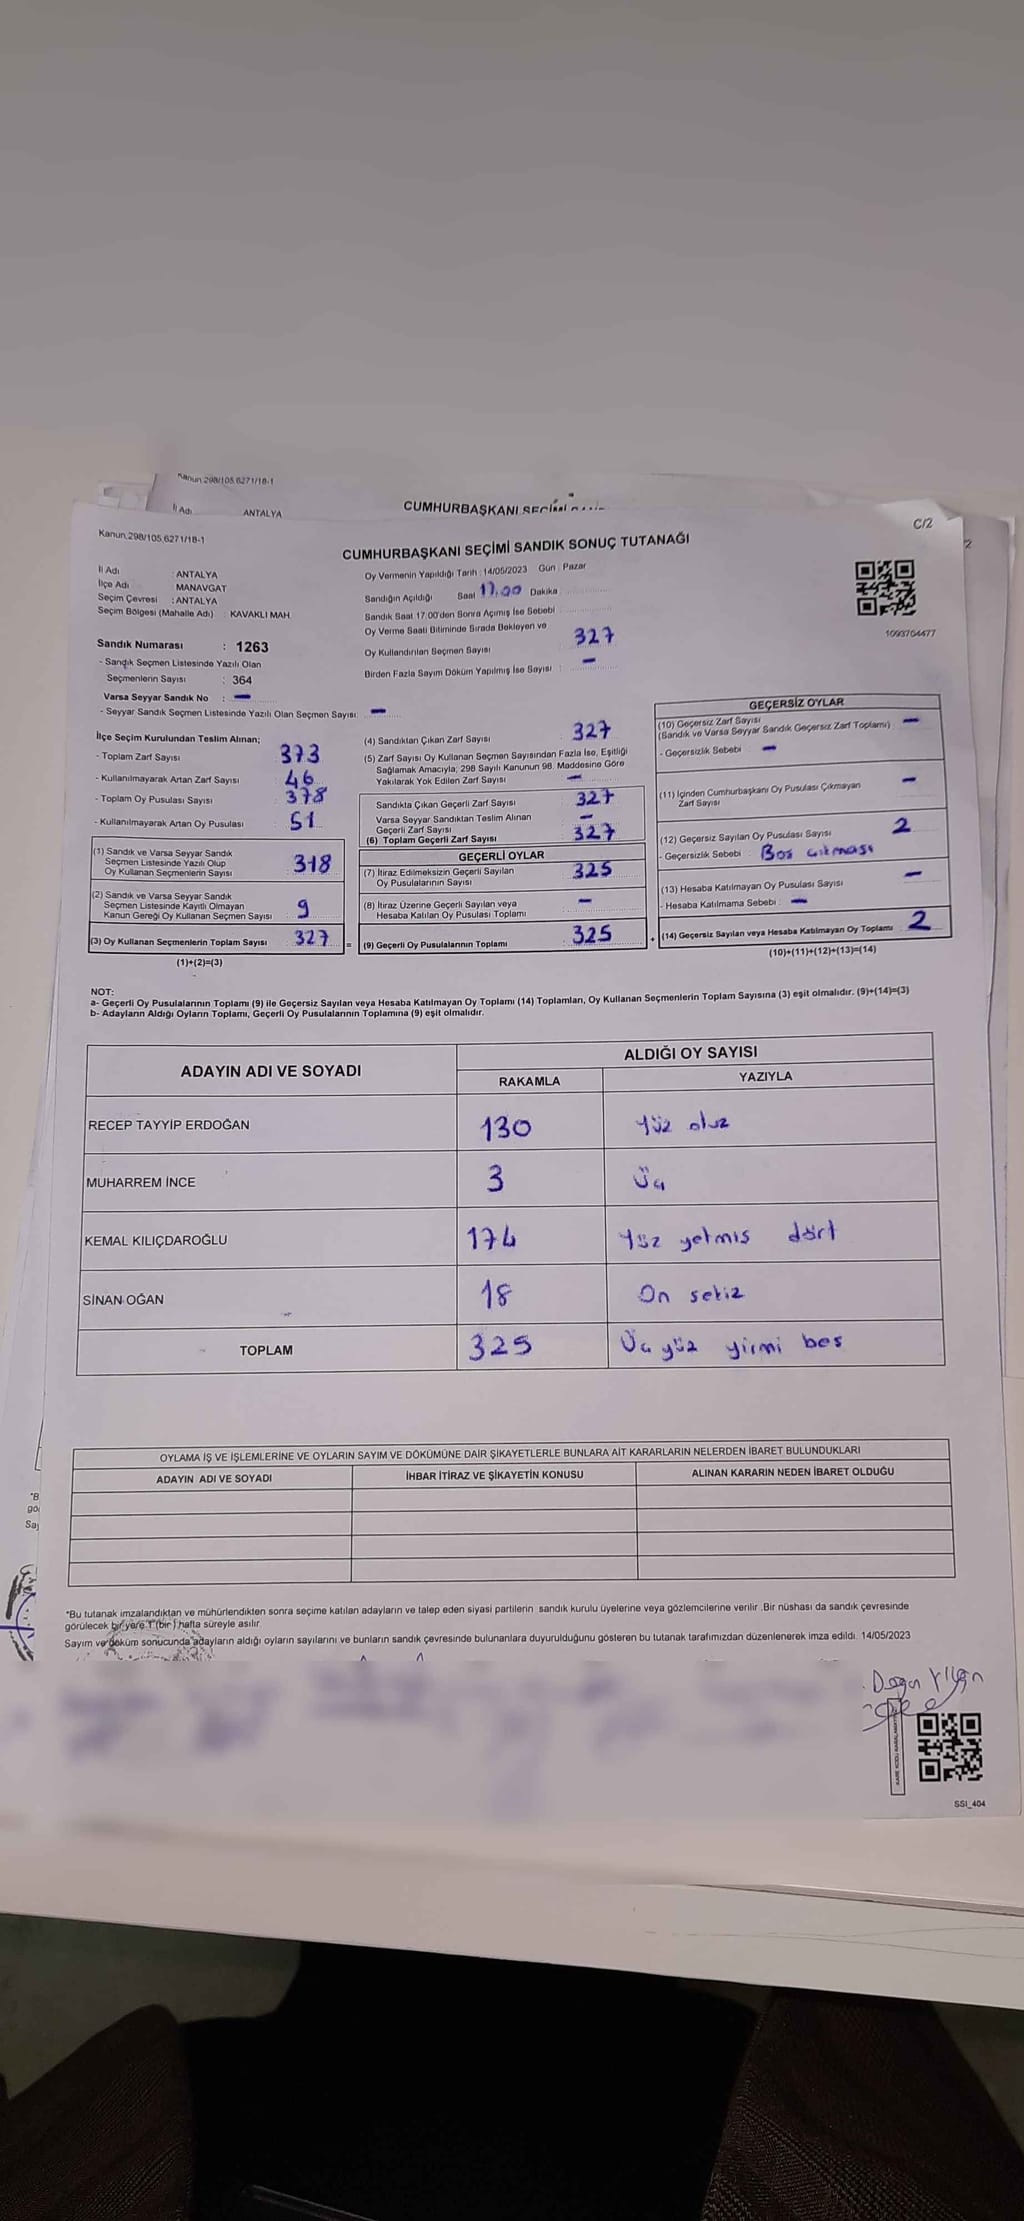 Kanun.298/105,6271/18-1
İl Adı ANTALYA
CUMHURBAŞKANI
C/2
Kanun,298/105,6271/18-1
CUMHURBAŞKANI SEÇİMİ SANDIK SONUÇ TUTANAĞI
İl Adı : ANTALYA
İlçe Adı : MANAVGAT
Seçim Çevresi : ANTALYA
Seçim Bölgesi (Mahalle Adı) : KAVAKLI MAH.
Oy Vermenin Yapıldığı Tarih : 14/05/2023 Gün : Pazar
Sandığın Açıldığı Saat 17.00 Dakika :
Sandık Saat 17:00'den Sonra Açımış İse Sebebi :
Oy Verme Saati Bitiminde Sırada Bekleyen ve
Oy Kullandırılan Seçmen Sayısı 327
Birden Fazla Sayım Döküm Yapılmış İse Sayısı : –
1093704477
Sandık Numarası : 1263
- Sandık Seçmen Listesinde Yazılı Olan
Seçmenlerin Sayısı : 364
Varsa Seyyar Sandık No : –
- Seyyar Sandık Seçmen Listesinde Yazılı Olan Seçmen Sayısı: –
İlçe Seçim Kurulundan Teslim Alınan;
- Toplam Zarf Sayısı 373
- Kullanılmayarak Artan Zarf Sayısı 46
- Toplam Oy Pusulası Sayısı 378
- Kullanılmayarak Artan Oy Pusulası 51
(1) Sandık ve Varsa Seyyar Sandık
Seçmen Listesinde Yazılı Olup
Oy Kullanan Seçmenlerin Sayısı 318
(2) Sandık ve Varsa Seyyar Sandık
Seçmen Listesinde Kayıtlı Olmayan
Kanun Gereği Oy Kullanan Seçmen Sayısı 9
(3) Oy Kullanan Seçmenlerin Toplam Sayısı 327 =
(1)+(2)=(3)
(4) Sandıktan Çıkan Zarf Sayısı 327
(5) Zarf Sayısı Oy Kullanan Seçmen Sayısından Fazla İse, Eşitliği
Sağlamak Amacıyla; 298 Sayılı Kanunun 98. Maddesine Göre
Yakılarak Yok Edilen Zarf Sayısı –
Sandıkta Çıkan Geçerli Zarf Sayısı 327
Varsa Seyyar Sandıktan Teslim Alınan
Geçerli Zarf Sayısı –
(6) Toplam Geçerli Zarf Sayısı 327
GEÇERLİ OYLAR
(7) İtiraz Edilmeksizin Geçerli Sayılan
Oy Pusulalarının Sayısı 325
(8) İtiraz Üzerine Geçerli Sayılan veya
Hesaba Katılan Oy Pusulası Toplamı –
(9) Geçerli Oy Pusulalarının Toplamı 325 +
GEÇERSİZ OYLAR
(10) Geçersiz Zarf Sayısı
(Sandık ve Varsa Seyyar Sandık Geçersiz Zarf Toplamı) –
- Geçersizlik Sebebi –
(11) İçinden Cumhurbaşkanı Oy Pusulası Çıkmayan
Zarf Sayısı –
(12) Geçersiz Sayılan Oy Pusulası Sayısı 2
- Geçersizlik Sebebi : Boş çıkması
(13) Hesaba Katılmayan Oy Pusulası Sayısı –
- Hesaba Katılmama Sebebi : –
(14) Geçersiz Sayılan veya Hesaba Katılmayan Oy Toplamı 2
(10)+(11)+(12)+(13)=(14)
NOT:
a- Geçerli Oy Pusulalarının Toplamı (9) ile Geçersiz Sayılan veya Hesaba Katılmayan Oy Toplamı (14) Toplamları, Oy Kullanan Seçmenlerin Toplam Sayısına (3) eşit olmalıdır. (9)+(14)=(3)
b- Adayların Aldığı Oyların Toplamı, Geçerli Oy Pusulalarının Toplamına (9) eşit olmalıdır.
ADAYIN ADI VE SOYADI ALDIĞI OY SAYISI
RAKAMLA YAZIYLA
RECEP TAYYİP ERDOĞAN 130 Yüz otuz
MUHARREM İNCE 3 Üç
KEMAL KILIÇDAROĞLU 174 Yüz yetmiş dört
SİNAN OĞAN 18 On sekiz
TOPLAM 325 Üç yüz yirmi beş
OYLAMA İŞ VE İŞLEMLERİNE VE OYLARIN SAYIM VE DÖKÜMÜNE DAİR ŞİKAYETLERLE BUNLARA AİT KARARLARIN NELERDEN İBARET BULUNDUKLARI
ADAYIN ADI VE SOYADI İHBAR İTİRAZ VE ŞİKAYETİN KONUSU ALINAN KARARIN NEDEN İBARET OLDUĞU
*Bu tutanak imzalandıktan ve mühürlendikten sonra seçime katılan adayların ve talep eden siyasi partilerin sandık kurulu üyelerine veya gözlemcilerine verilir .Bir nüshası da sandık çevresinde
görülecek bir yere 1 (bir) hafta süreyle asılır.
Sayım ve döküm sonucunda adayların aldığı oyların sayılarını ve bunların sandık çevresinde bulunanlara duyurulduğunu gösteren bu tutanak tarafımızdan düzenlenerek imza edildi. 14/05/2023
SSI_404